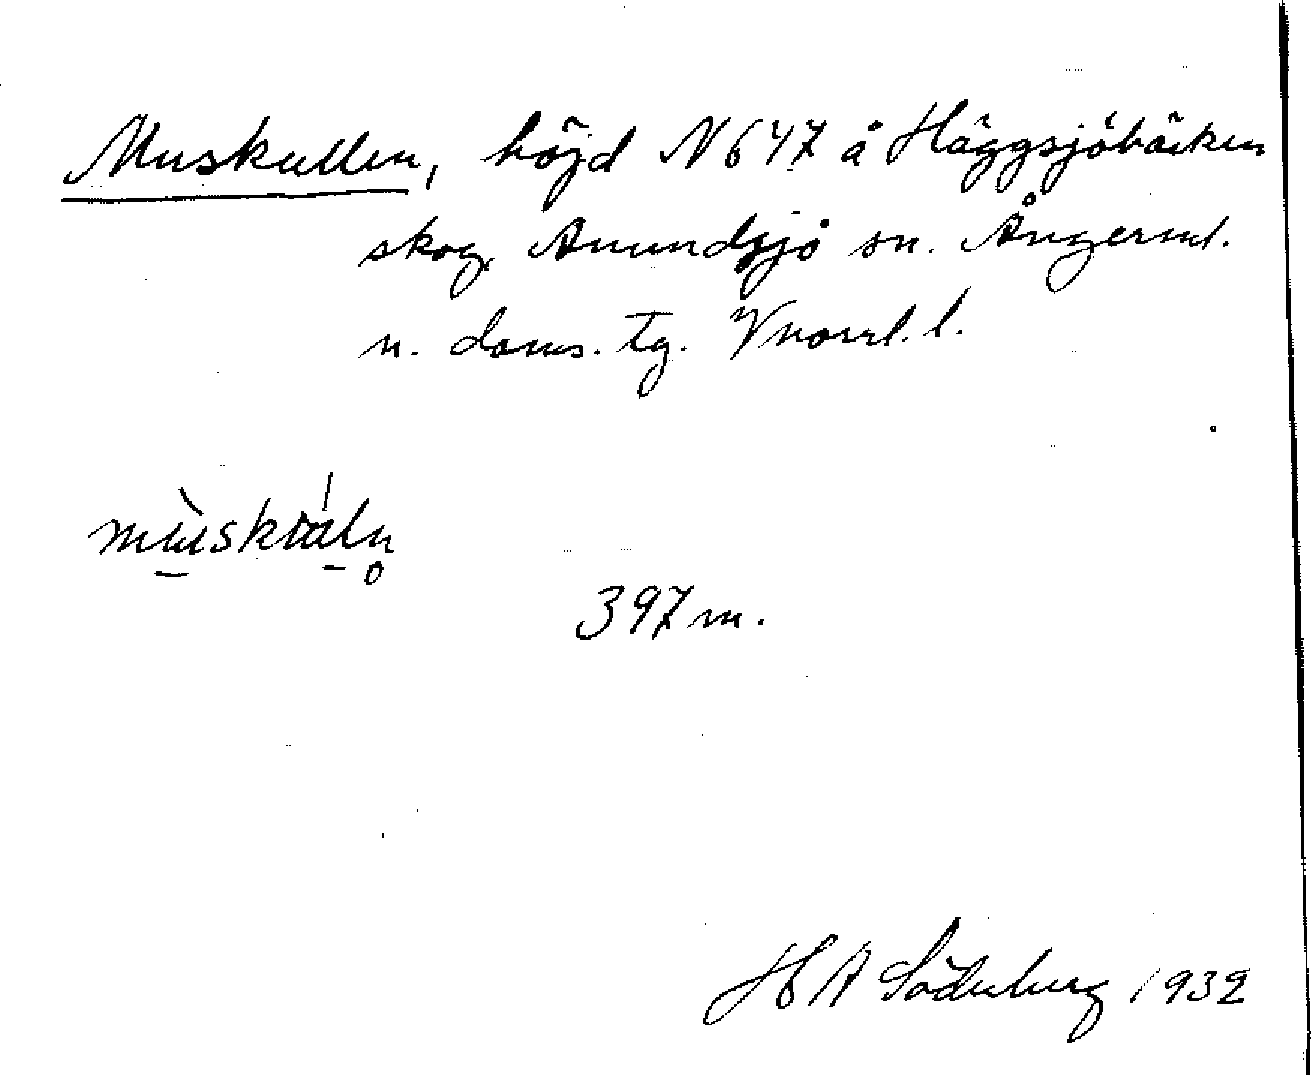 Muskullen, höjd N 647 å Häggsjöbäcken
skog, Anundsjö sn. Ångerml.
n. doms. tg. Vnorrl. l.
397 m.
H A Söderberg 1932